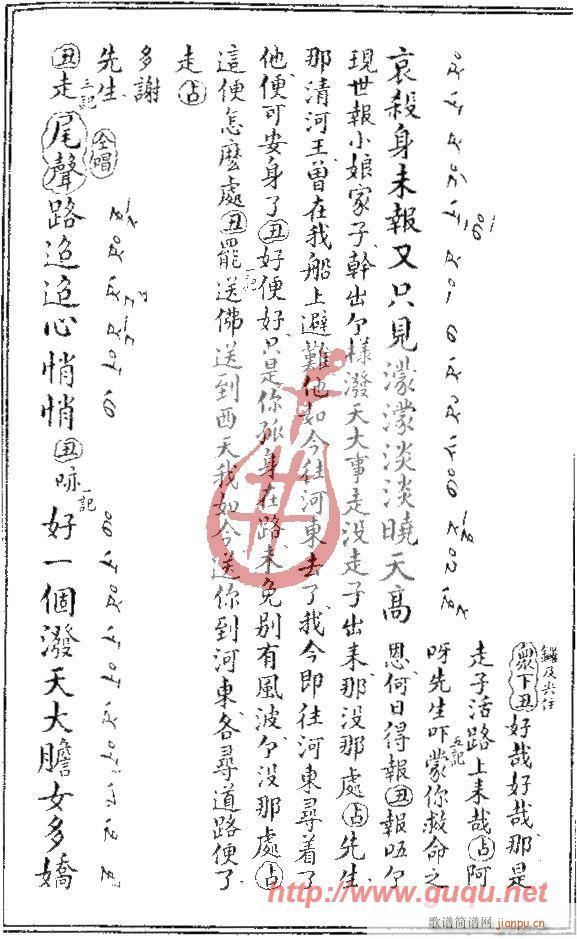 鑼及尖住
眾下丑好哉好哉那是
走子活路上来哉占阿
呀先生吓蒙你救命之
五記
恩何日得報丑報唔个
哀殺身未報又只見濛濛淡淡曉天高
現世報小娘家子幹出个樣潑天大事走没走子出来那没那處占先生
那清河王曽在我船上避難他如今往河東去了我今即往河東尋着了
他便可安身了丑好便好只是你孤身在路未免别有風波个没那處占
這便怎麽處丑罷送佛送到西天我如今送你到河東各尋道路便了
一記
走占
多謝
先生
三記
丑走尾聲路迢迢心悄悄丑哧好一個潑天大膽女多嬌
仝唱
一記
http://www.guqu.net
歌谱简谱网
jianpu.cn